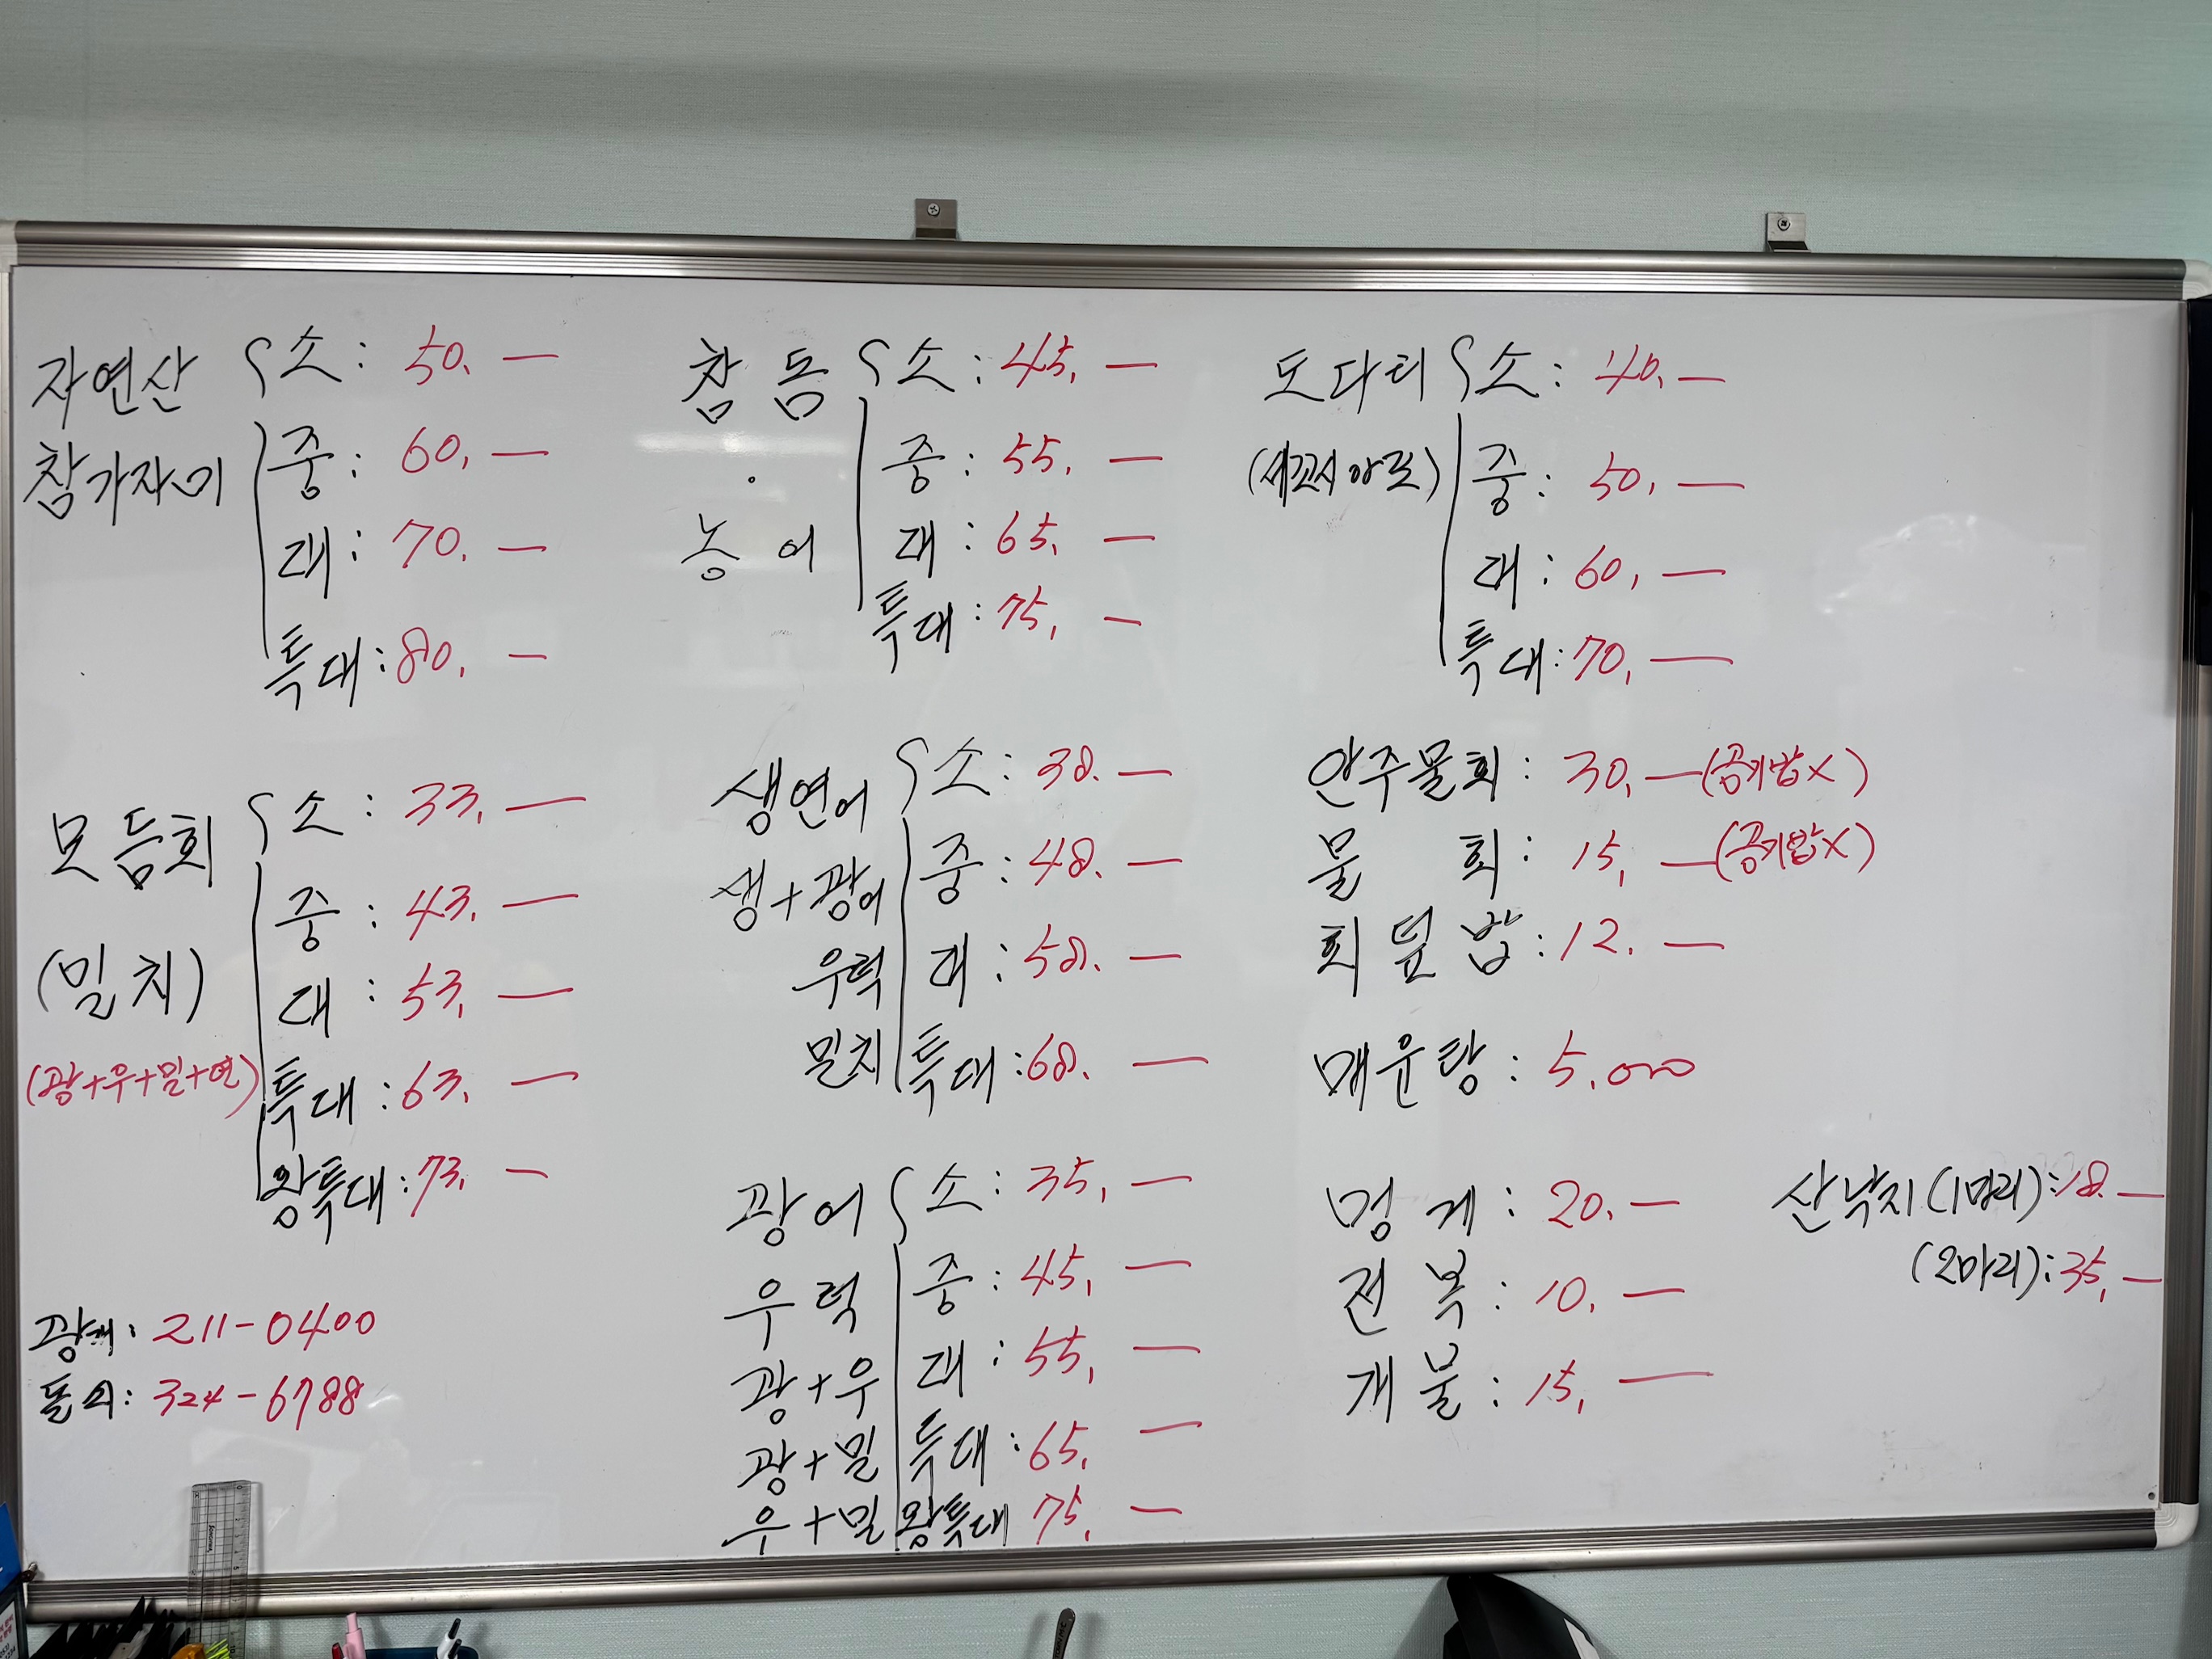 자연산
참가자미
소 : 50. —
중 : 60. —
대 : 70. —
특대 : 80. —
참돔
·
농어
소 : 45. —
중 : 55. —
대 : 65. —
특대 : 75. —
도다리
(세꼬시 양도)
소 : 40. —
중 : 50. —
대 : 60. —
특대 : 70. —
모듬회
(밀치)
(광+우+밀+연)
소 : 33. —
중 : 43. —
대 : 53. —
특대 : 63. —
왕특대 : 73. —
생연어
생+광어
우럭
밀치
소 : 38. —
중 : 48. —
대 : 58. —
특대 : 68. —
안주물회 : 30. — (공기밥X)
물 회 : 15. — (공기밥X)
회덮밥 : 12. —
매운탕 : 5.000
광어
우럭
광+우
광+밀
우+밀
소 : 35. —
중 : 45. —
대 : 55. —
특대 : 65. —
왕특대 75. —
멍게 : 20. —
전복 : 10. —
개불 : 15. —
산낙지(1마리) : 18. —
(2마리) : 35. —
211-0400
324-6788